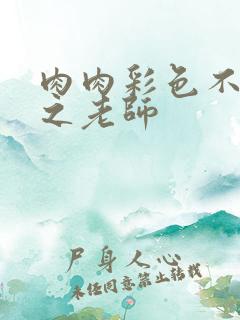 肉肉彩色不
之老師
尸身人心
未经同意禁止转载